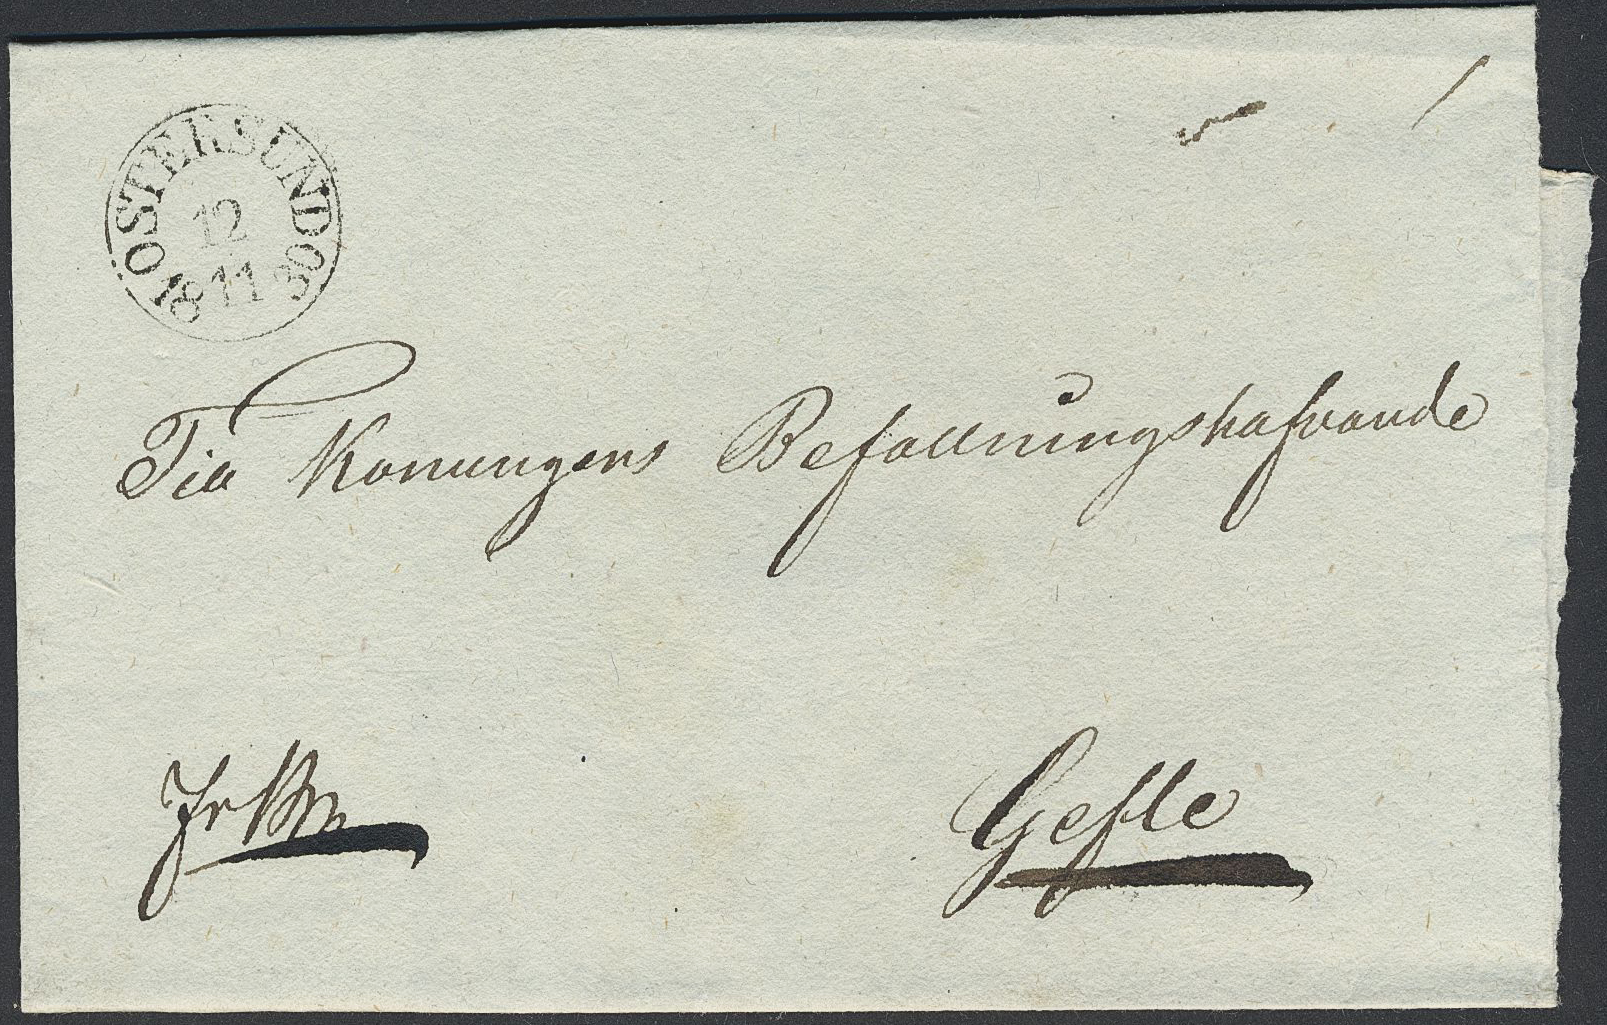 OSTERSUND
12
18 11 30
Till Konungens Befallningshafvande
Gefle